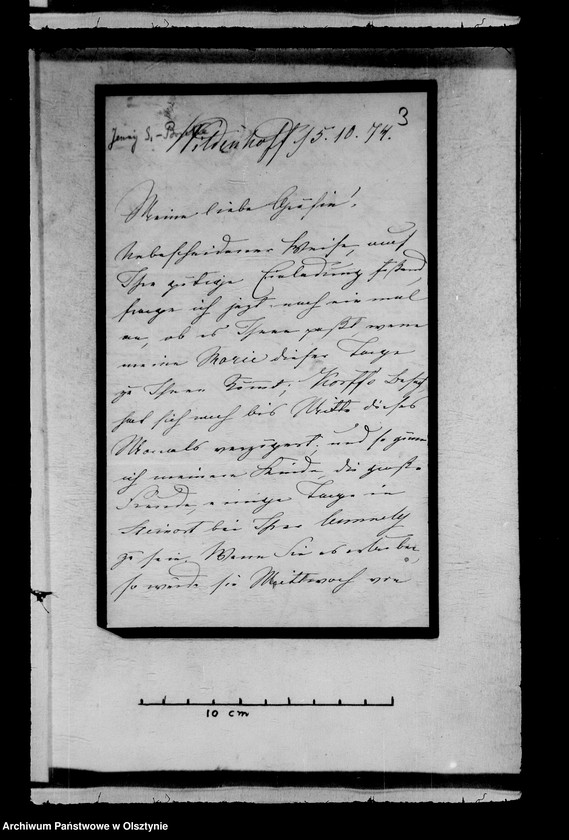 3
Jenny S.-
Wildenhoff 5.10.74.
Meine liebe Gräfin!
Unbescheidener Weise, auf
Ihre gütige Einladung fußend,
frage ich jetzt noch ein mal
an, ob es Ihnen paßt, wenn
meine Marie dieser Tage
zu Ihnen kömt; Korffs Besuch
hat sich noch bis Mitte dieses
Monats verzögert, und so gönne
ich meinem Kinde die große
Freude, einige Tage in
Steinort bei Ihrer
zu sein. Wenn Sie es erlauben,
so würde sie Mittwoch von
10 cm
Archiwum Państwowe w Olsztynie